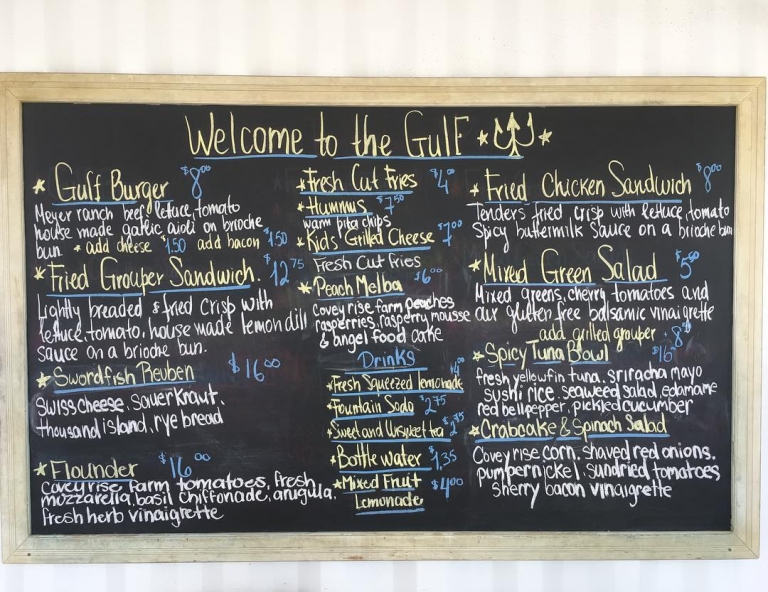 Welcome to the Gulf
Gulf Burger $8.00
Meyer ranch beef, lettuce, tomato
house made garlic aioli on brioche
bun. * add cheese $1.50 add bacon $1.50
Fried Grouper Sandwich. $12.75
Lightly breaded & fried crisp with
lettuce, tomato, house made lemon dill
sauce on a brioche bun.
Swordfish Reuben $16.00
Swiss cheese, sauerkraut,
thousand island, rye bread
Flounder $16.00
covey rise farm tomatoes, fresh
mozzarella, basil chiffonade, arugula.
fresh herb vinaigrette
Fresh Cut Fries $4.00
Hummus $7.50
warm pita chips
Kids Grilled Cheese $7.00
Fresh Cut Fries
Peach Melba $6.00
Covey rise farm peaches
raspberries, raspberry mousse
& angel food cake
Drinks
Fresh Squeezed lemonade $4.00
Fountain Soda $2.75
Sweet and Unsweet tea
Bottle water $1.35
Mixed Fruit $4.00
Lemonade
Fried Chicken Sandwich $8.00
Tenders fried crisp with lettuce, tomato
Spicy buttermilk sauce on a brioche bun
Mixed Green Salad
Mixed greens, cherry tomatoes and
our gluten free balsamic vinaigrette
add grilled grouper
Spicy Tuna Bowl $16
fresh yellowfin tuna, sriracha mayo
sushi rice, seaweed salad, edamame
red bell pepper, pickled cucumber
Crabcake & Spinach Salad
Covey rise corn, shaved red onions.
pumpernickel, sundried tomatoes
sherry bacon vinaigrette